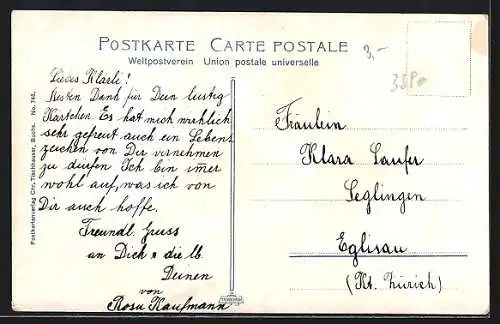 POSTKARTE CARTE POSTALE
Weltpostverein Union postale universelle
3.-
Liebes Klärli!
Besten Dank für Dein lustig
Kärtchen. Es hat mich wirklich
sehr gefreut auch ein Lebens
zeichen von Dir vernehmen
zu dürfen Ich bin im̅er
wohl auf, was ich von
Dir auch hoffe.
Freundl. Gruss
an Dich u die lb.
Deinen
von
Rosa Kaufmann
Fräulein
Klara Laufer
Seglingen
Eglisau
(Kt. Zürich)
Postkartenverlag Chr. Tischhauser, Buchs. No. 745.